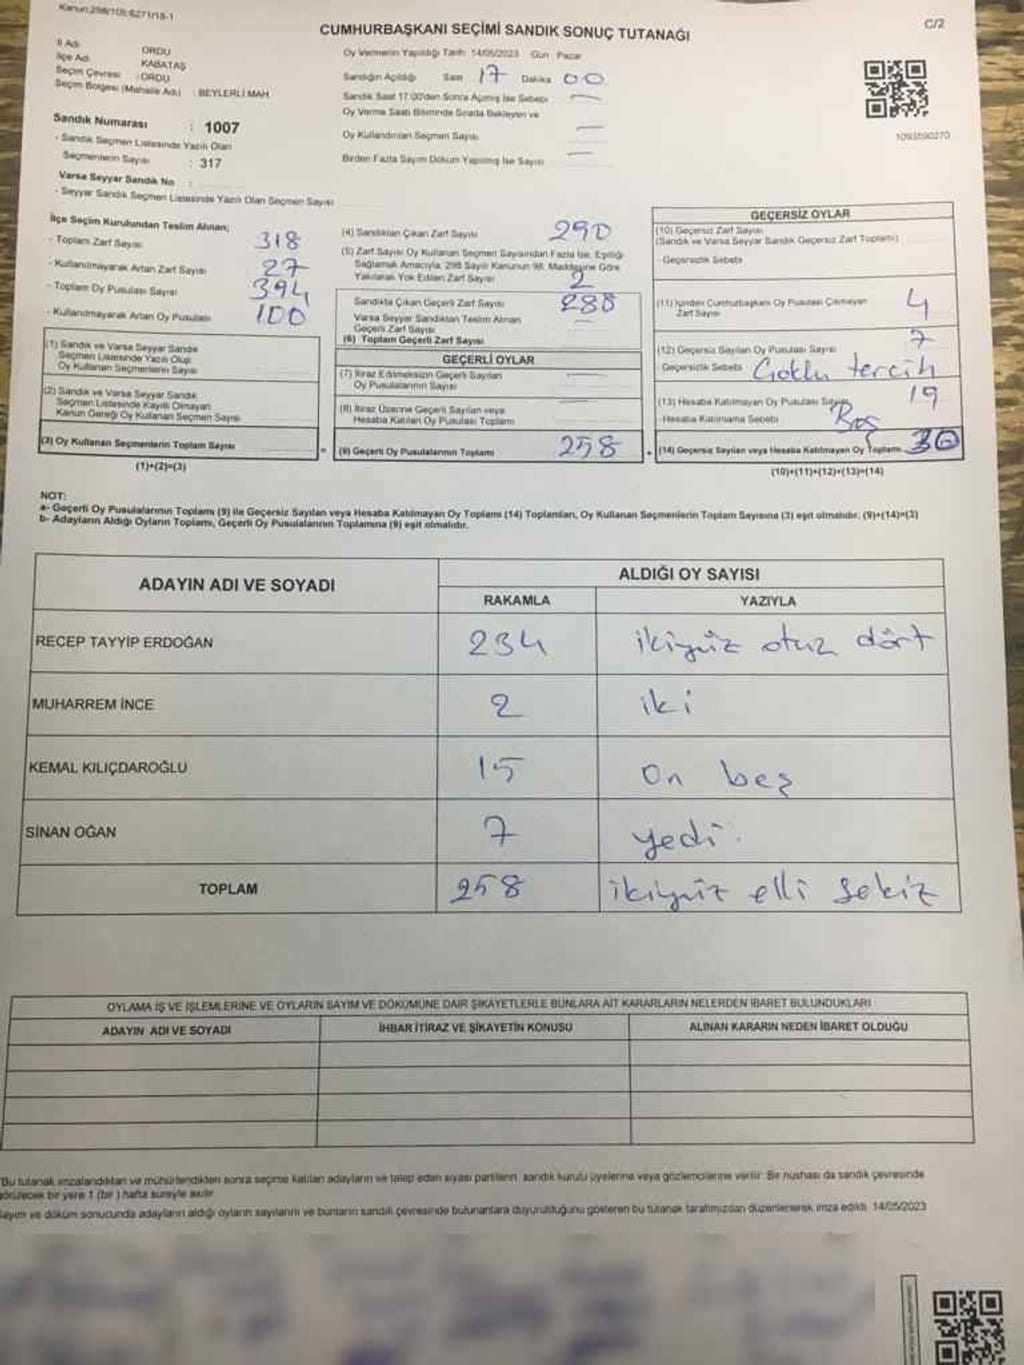 Kanun:298/105;6271/18-1
C/2
CUMHURBAŞKANI SEÇİMİ SANDIK SONUÇ TUTANAĞI
İl Adı : ORDU
İlçe Adı : KABATAŞ
Seçim Çevresi : ORDU
Seçim Bölgesi (Mahalle Adı) : BEYLERLİ MAH
Oy Vermenin Yapıldığı Tarih 14/05/2023 Gün : Pazar
Sandığın Açıldığı Saat 17 Dakika 00
Sandık Saat 17:00'den Sonra Açılmış İse Sebebi
Oy Verme Saati Bitiminde Sırada Bekleyen ve
Oy Kullandırılan Seçmen Sayısı
Birden Fazla Sayım Döküm Yapılmış İse Sayısı
1093590270
Sandık Numarası : 1007
- Sandık Seçmen Listesinde Yazılı Olan
Seçmenlerin Sayısı : 317
Varsa Seyyar Sandık No :
- Seyyar Sandık Seçmen Listesinde Yazılı Olan Seçmen Sayısı
İlçe Seçim Kurulundan Teslim Alınan;
- Toplam Zarf Sayısı 318
- Kullanılmayarak Artan Zarf Sayısı 27
- Toplam Oy Pusulası Sayısı 394
- Kullanılmayarak Artan Oy Pusulası 100
(1) Sandık ve Varsa Seyyar Sandık
Seçmen Listesinde Yazılı Olup
Oy Kullanan Seçmenlerin Sayısı
(2) Sandık ve Varsa Seyyar Sandık
Seçmen Listesinde Kayıtlı Olmayan
Kanun Gereği Oy Kullanan Seçmen Sayısı
(3) Oy Kullanan Seçmenlerin Toplam Sayısı
(1)+(2)=(3)
(4) Sandıktan Çıkan Zarf Sayısı 290
(5) Zarf Sayısı Oy Kullanan Seçmen Sayısından Fazla İse, Eşitliği
Sağlamak Amacıyla, 298 Sayılı Kanunun 98. Maddesine Göre
Yakılarak Yok Edilen Zarf Sayısı 2
Sandıkta Çıkan Geçerli Zarf Sayısı 288
Varsa Seyyar Sandıktan Teslim Alınan
Geçerli Zarf Sayısı
(6) Toplam Geçerli Zarf Sayısı
GEÇERLİ OYLAR
(7) İtiraz Edilmeksizin Geçerli Sayılan
Oy Pusulalarının Sayısı
(8) İtiraz Üzerine Geçerli Sayılan veya
Hesaba Katılan Oy Pusulası Toplamı
= (9) Geçerli Oy Pusulalarının Toplamı 258
GEÇERSİZ OYLAR
(10) Geçersiz Zarf Sayısı
(Sandık ve Varsa Seyyar Sandık Geçersiz Zarf Toplamı)
- Geçersizlik Sebebi
(11) İçinden Cumhurbaşkanı Oy Pusulası Çıkmayan
Zarf Sayısı 4
(12) Geçersiz Sayılan Oy Pusulası Sayısı 7
- Geçersizlik Sebebi Çoklu tercih
(13) Hesaba Katılmayan Oy Pusulası Sayısı 19
- Hesaba Katılmama Sebebi Boş
+ (14) Geçersiz Sayılan veya Hesaba Katılmayan Oy Toplamı 30
(10)+(11)+(12)+(13)=(14)
NOT:
a- Geçerli Oy Pusulalarının Toplamı (9) ile Geçersiz Sayılan veya Hesaba Katılmayan Oy Toplamı (14) Toplamları, Oy Kullanan Seçmenlerin Toplam Sayısına (3) eşit olmalıdır. (9)+(14)=(3)
b- Adayların Aldığı Oyların Toplamı, Geçerli Oy Pusulalarının Toplamına (9) eşit olmalıdır.
ADAYIN ADI VE SOYADI ALDIĞI OY SAYISI
RAKAMLA YAZIYLA
RECEP TAYYİP ERDOĞAN 234 ikiyüz otuz dört
MUHARREM İNCE 2 iki
KEMAL KILIÇDAROĞLU 15 On beş
SİNAN OĞAN 7 yedi
TOPLAM 258 ikiyüz elli sekiz
OYLAMA İŞ VE İŞLEMLERİNE VE OYLARIN SAYIM VE DÖKÜMÜNE DAİR ŞİKAYETLERLE BUNLARA AİT KARARLARIN NELERDEN İBARET BULUNDUKLARI
ADAYIN ADI VE SOYADI İHBAR İTİRAZ VE ŞİKAYETİN KONUSU ALINAN KARARIN NEDEN İBARET OLDUĞU
Bu tutanak imzalandıktan ve mühürlendikten sonra seçime katılan adayların ve talep eden siyasi partilerin sandık kurulu üyelerine veya gözlemcilerine verilir. Bir nüshası da sandık çevresinde
görülecek bir yere 1 (bir) hafta süreyle asılır.
Sayım ve döküm sonucunda adayların aldığı oyların sayılarını ve bunların sandık çevresinde bulunanlara duyurulduğunu gösteren bu tutanak tarafımızdan düzenlenerek imza edildi 14/05/2023